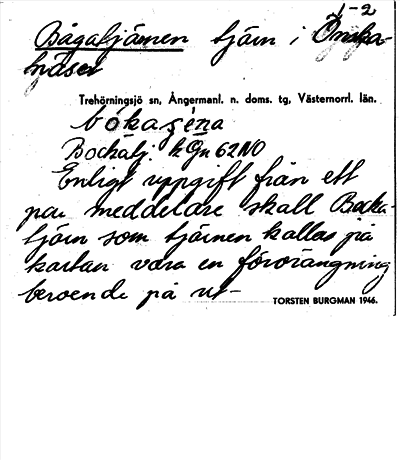 1-2
Bågatjärnen tjärn i Önska-
näset
Trehörningsjö sn, Ångermanl. n. doms. tg, Västernorrl. län.
bókaşéna
Bockatj. k Gn 62 NO
Enligt uppgift från ett
par meddelare skall Bocka-
tjärn som tjärnen kallas på
kartan vara en förvrängning
beroende på ut-
TORSTEN BURGMAN 1946.